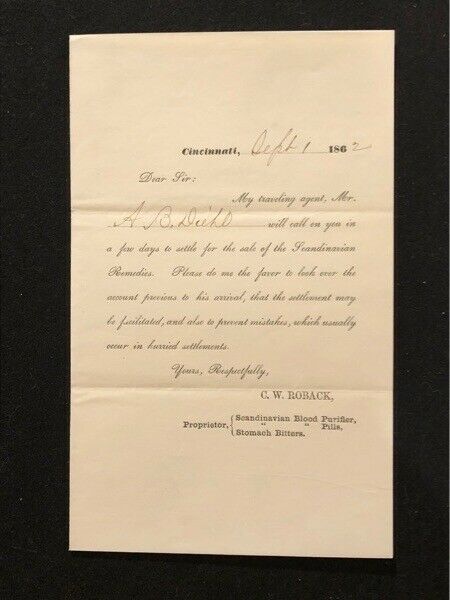 Cincinnati, Sept 1 1862
Dear Sir:
My traveling agent, Mr.
A. B. Diehl will call on you in
a few days to settle for the sale of the Scandinavian
Remedies. Please do me the favor to look over the
account previous to his arrival, that the settlement may
be facilitated, and also to prevent mistakes, which usually
occur in hurried settlements.
Yours, Respectfully,
C. W. ROBACK,
Proprietor, { Scandinavian Blood Purifier,
" " Pills,
Stomach Bitters.